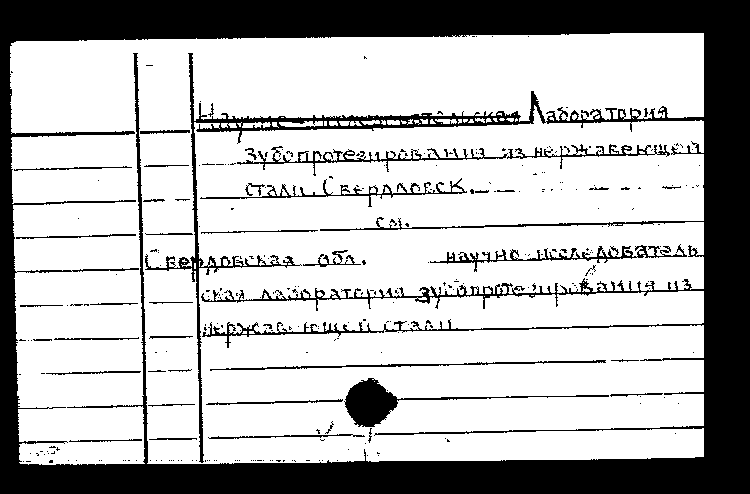 Научно-исследовательская Лаборатория
зубопротезирования из нержавеющей
стали. Свердловск.
см.
Свердовская обл. научно-исследователь
ская лаборатория зубопротезирования из
нержавеющей стали.